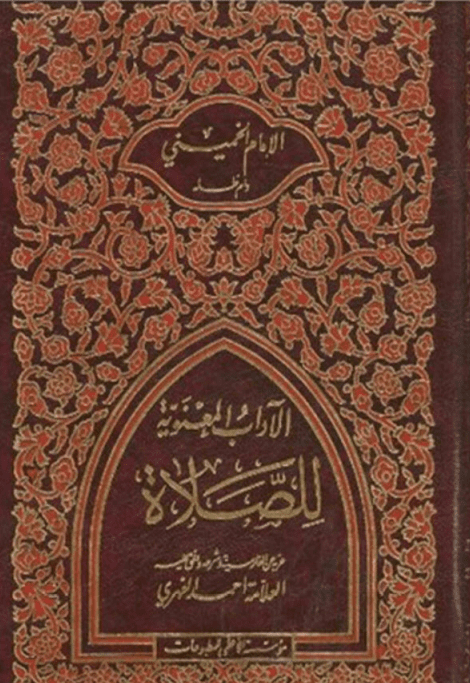 الإمام الخميني
دام ظله
الآداب المعنوية
للصَّلَاة
عربه عن الفارسية وشرحه وعلق عليه
العلامة أحمد الفهري
مؤسسة الأعلمي للمطبوعات